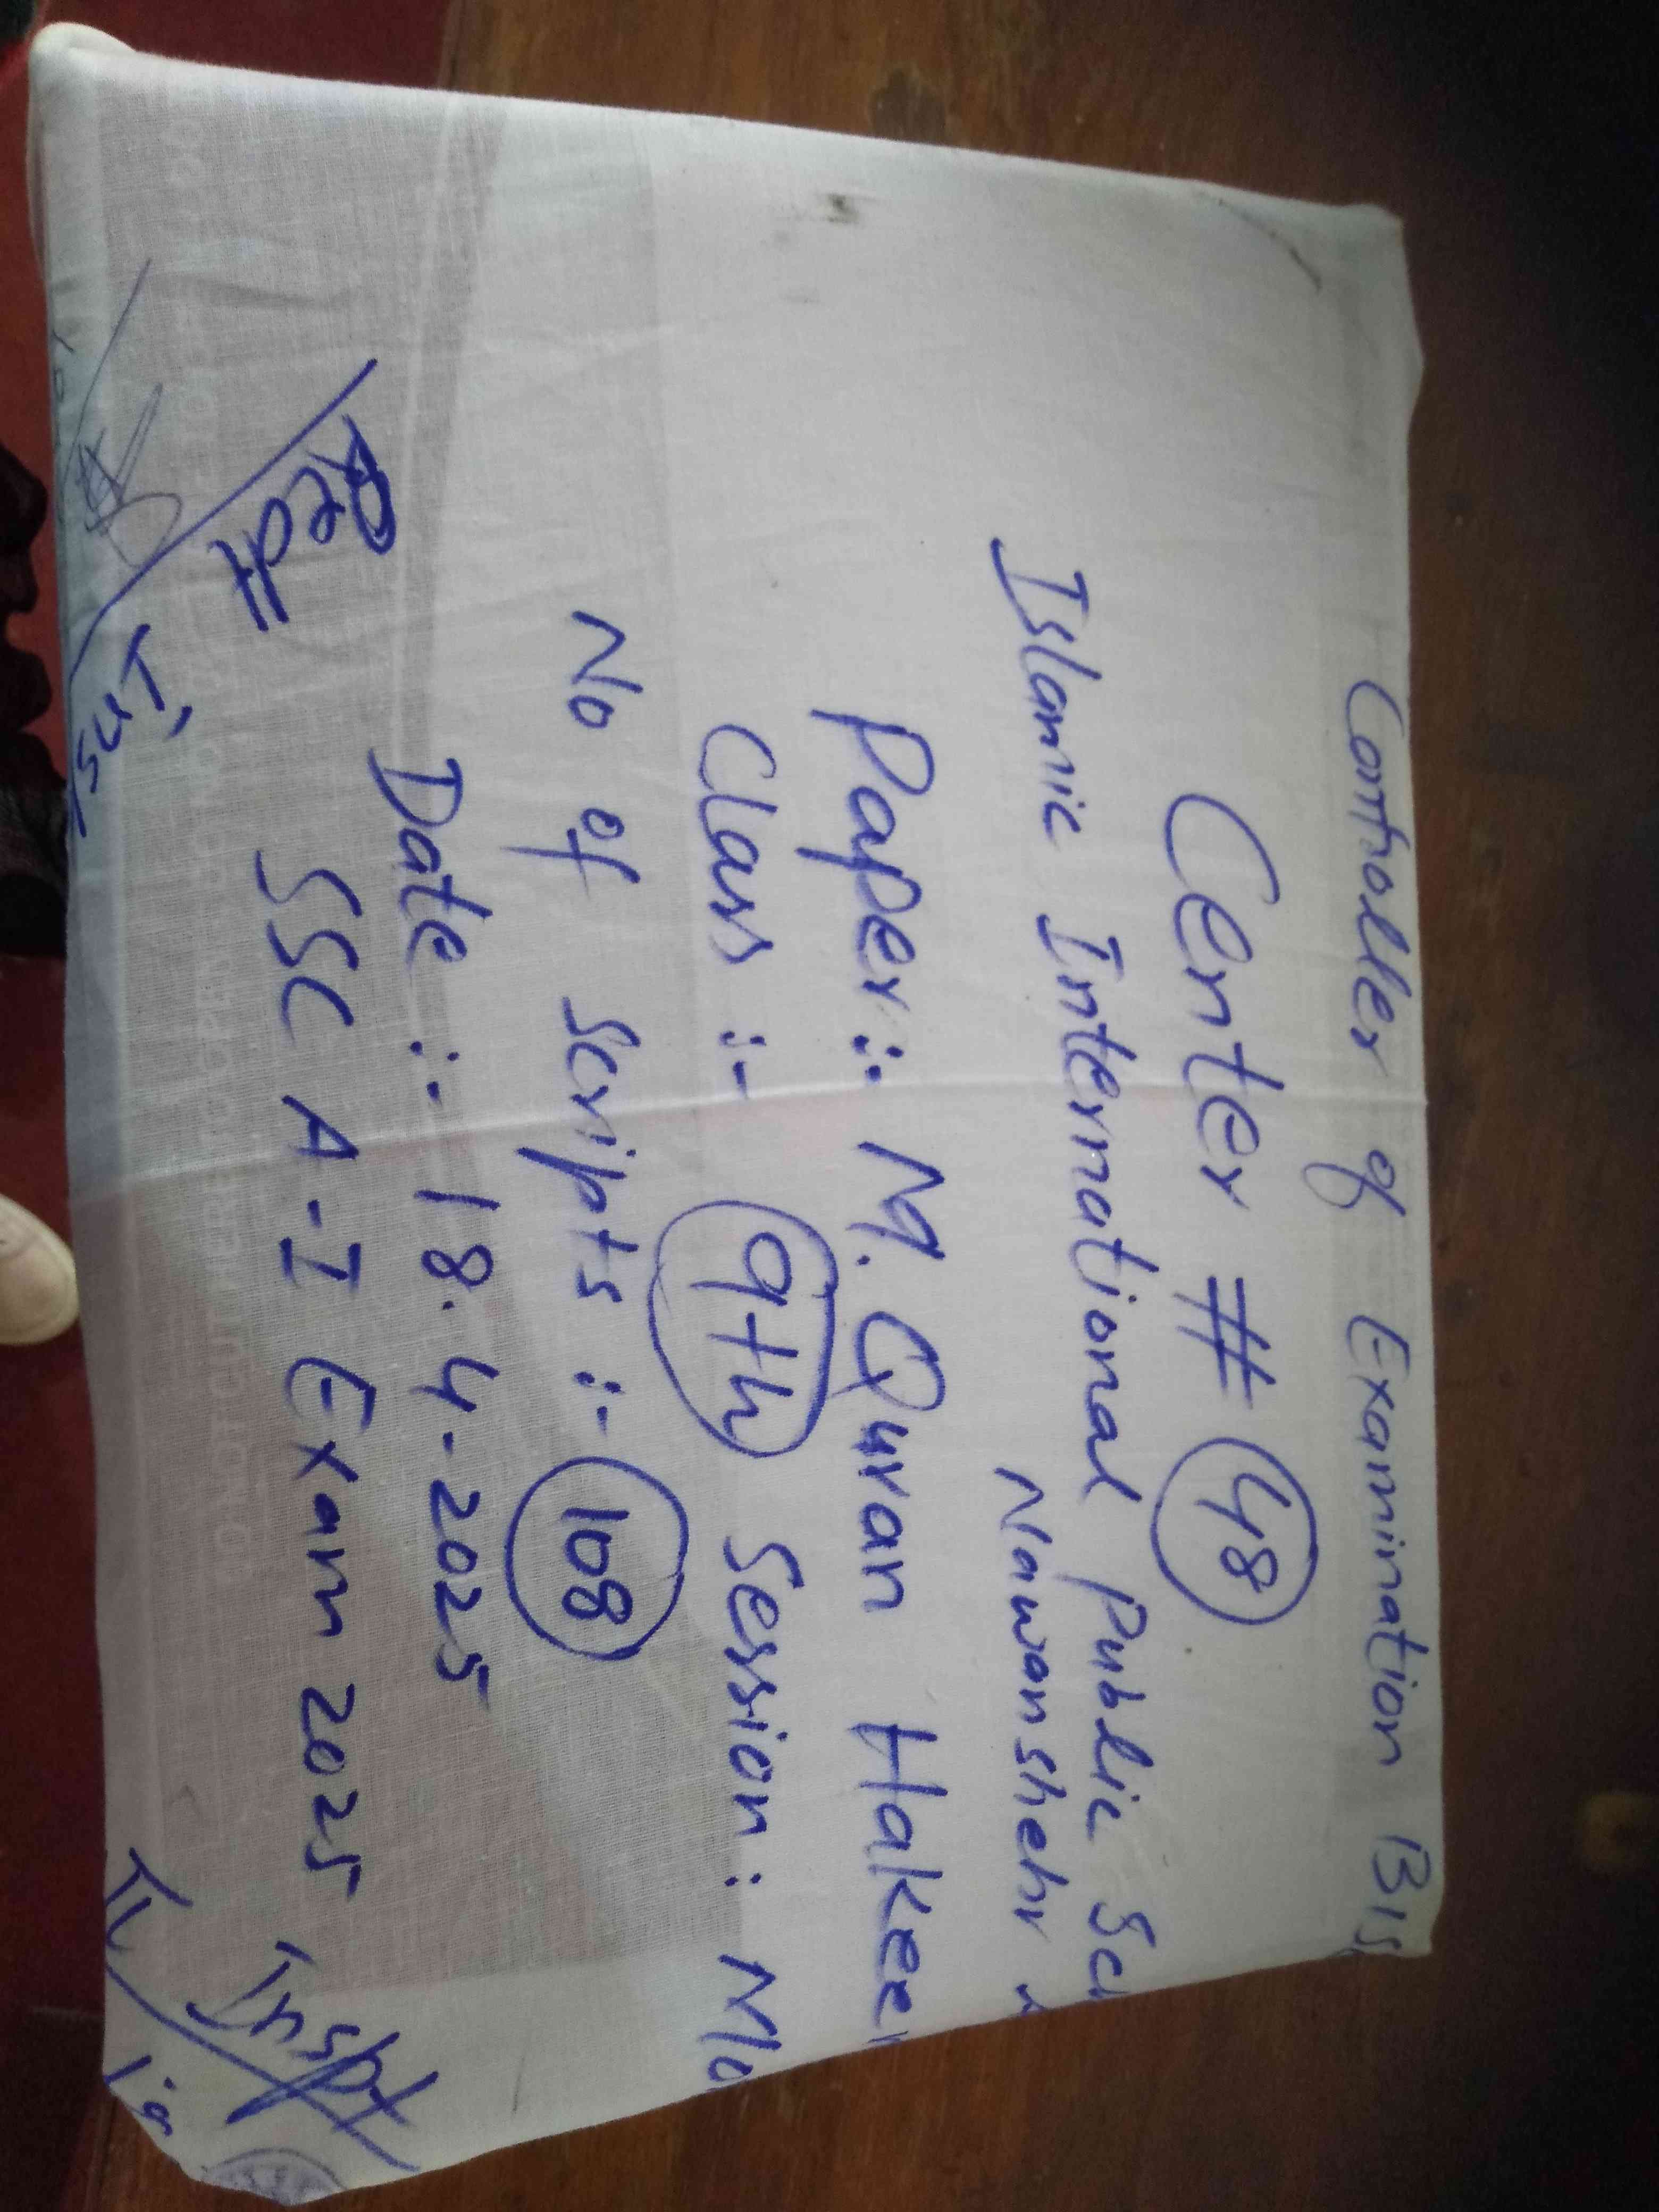 Controller of Examination BIS
Center # 48
Islamic International Public Sc
Nawanshehr
Paper:- M. Quran Hakee
Class :- 9th Session: Mo
No of Scripts :- 108
Date :- 18.4.2025
SSC A-I Exam 2025
Inspt
Ins